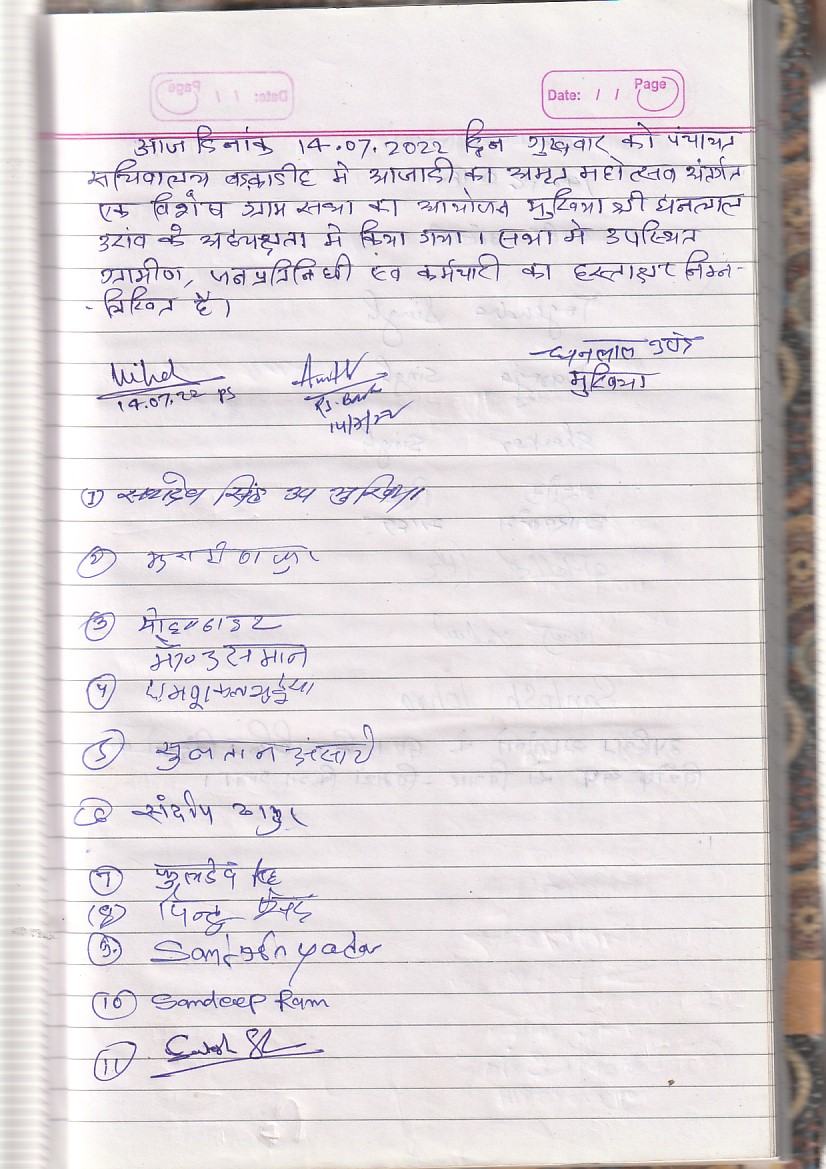 Date: / / Page
आज दिनांक 14.07.2022 दिन गुरुवार को पंचायत
सचिवालय बरकाडीह मे आजादी का अमृत महोत्सव अंतर्गत
एक विशेष ग्राम सभा का आयोजन मुखिया श्री धनलाल
उरांव के अध्यक्षता मे किया गया। सभा मे उपस्थित
ग्रामीण, जनप्रतिनिधी एवं कर्मचारी का हस्ताक्षर निम्न-
-लिखित है।
धनलाल उराँव
मुखिया
14.07.22 PS
14/7/22
① सत्यदेव सिंह उप मुखिया
②
③
मो० उसमान
④
⑤ सुलतान अंसारी
⑥ संदीप ठाकुर
⑦ फुलदेव सिंह
(8) पिन्टू
⑨. Santosh yadav
⑩ Sandeep Ram
⑪